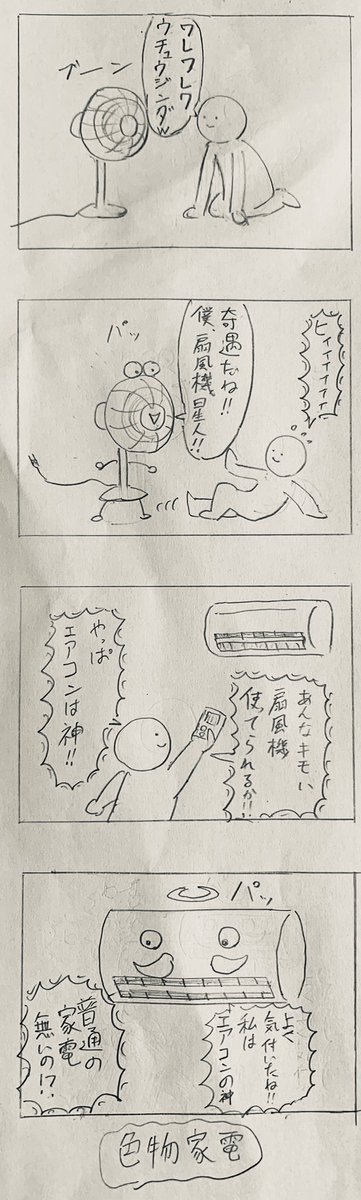 ブーン
ワレワレワ
ウチュウジンダ
ヒィィィィィィ!
パッ
奇遇だね!!
僕、扇風機星人!!
あんなキモい
扇風機
使てられるか!!
やっぱ
エアコンは神!!
パッ
よく
気付いたね!!
私は
エアコンの神
普通の
家電
無いの!?
色物家電